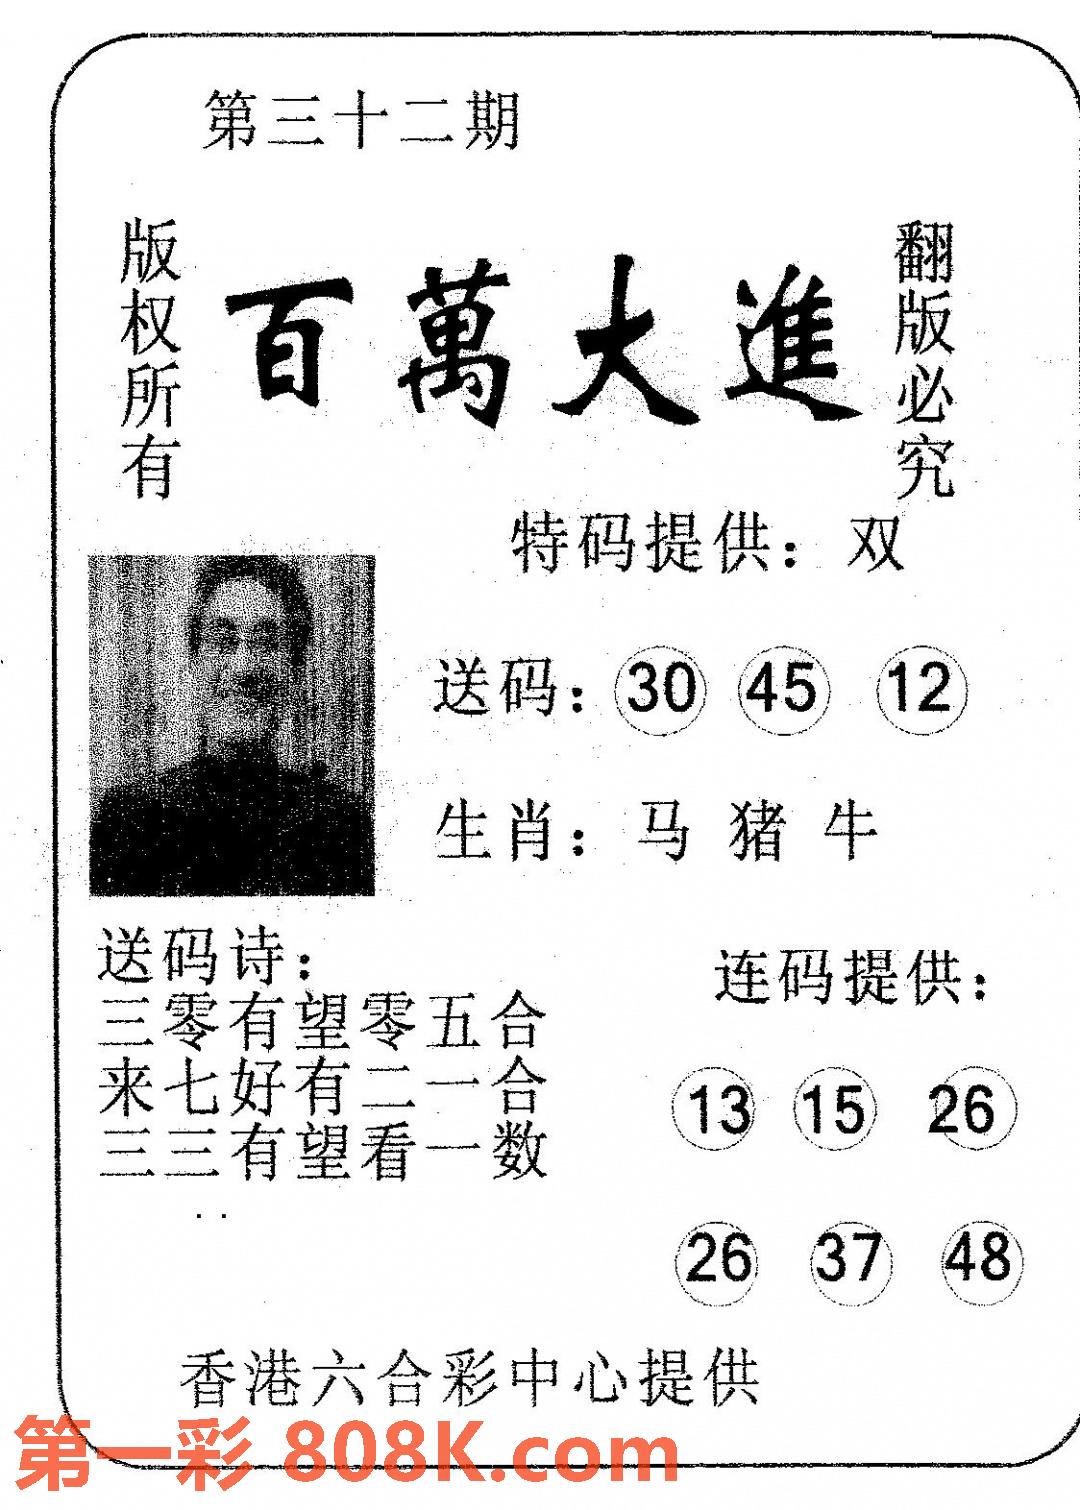 第三十二期
版权所有
百萬大進
翻版必究
特码提供：双
送码：30 45 12
生肖：马 猪 牛
送码诗：
三零有望零五合
来七好有二一合
三三有望看一数
连码提供：
13 15 26
26 37 48
香港六合彩中心提供
第一彩 808K.com